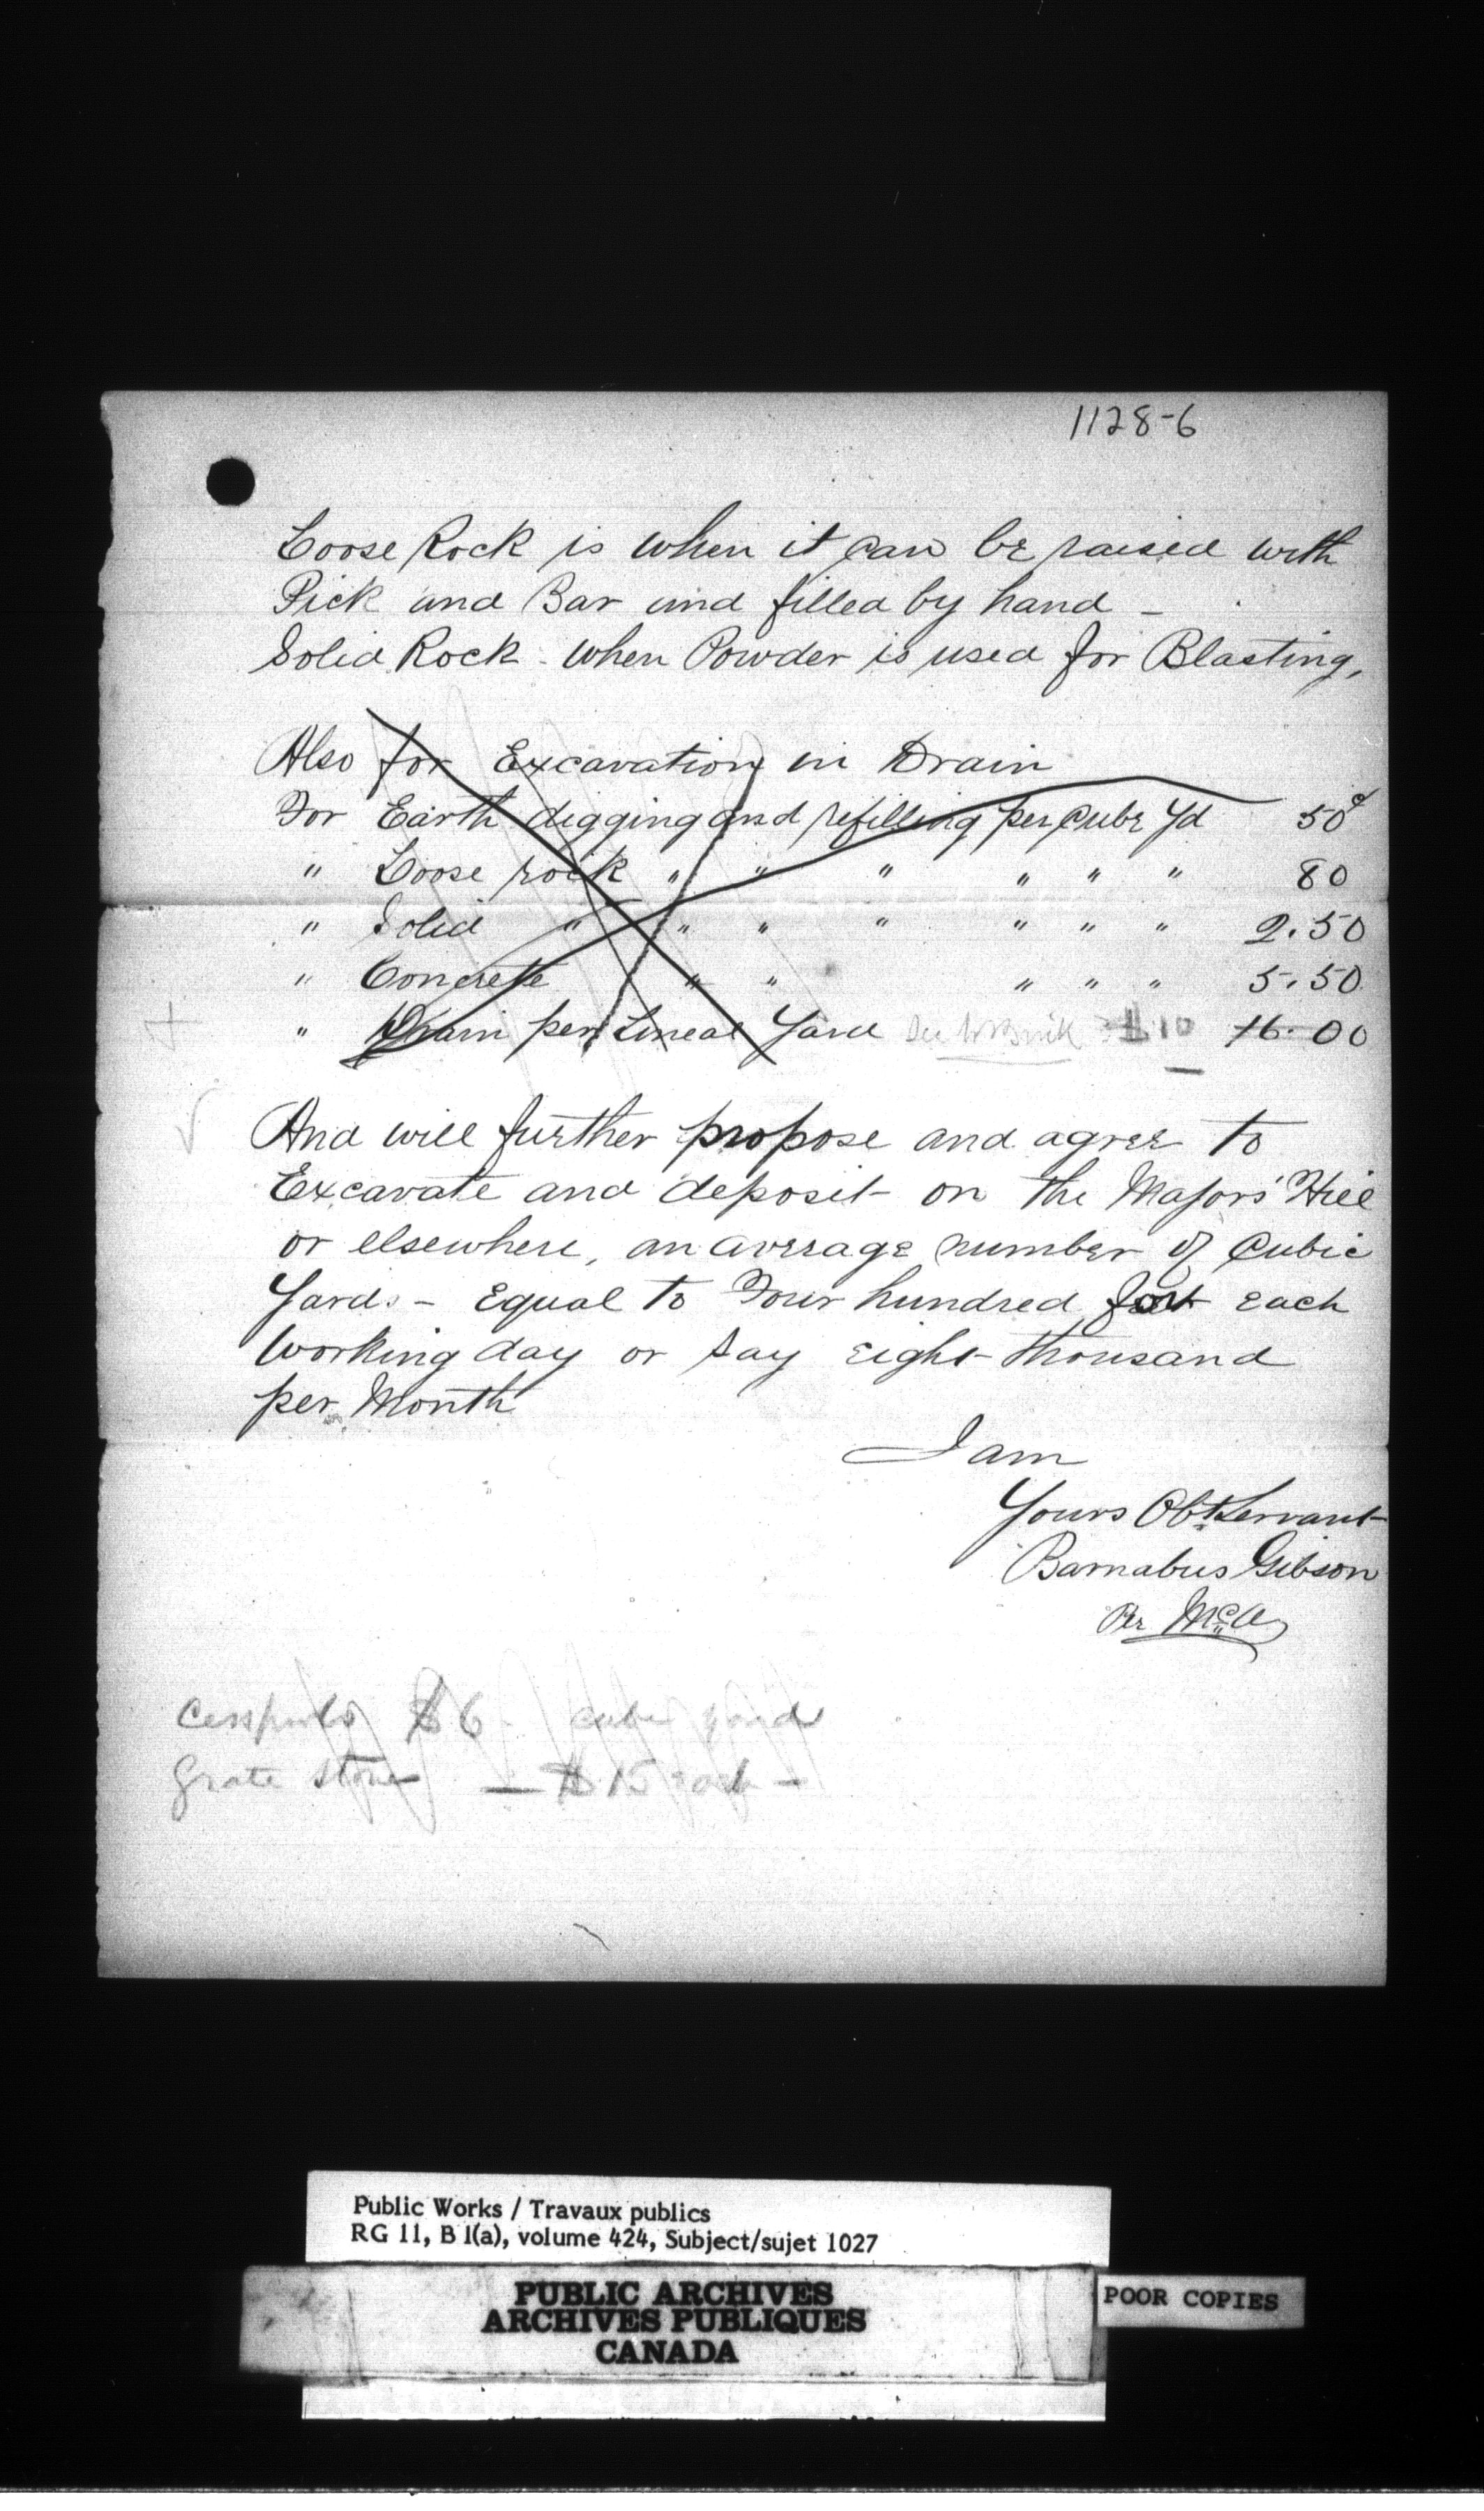 1128-6
Loose Rock is when it can be raised with
Pick and Bar and filled by hand -
Solid Rock - when Powder is used for Blasting,
Also for Excavation in Drain
For Earth digging and refilling per Cube Yd 50¢
" Loose rock " " " " " " 80
" Solid " " " " " " " 2.50
" Concrete " " " " " 5.50
" Drain per Lineal Yard $10 16.00
And will further propose and agree to
Excavate and deposit on the Majors' Hill
or elsewhere, an average number of Cubic
Yards - Equal to Four hundred for each
working day or say eight thousand
per Month
I am
Yours Obt Servant
Barnabus Gibson
Per McA
Cesspools $6 cube yard
Grate stone — $15 each —
Public Works / Travaux publics
RG 11, B 1(a), volume 424, Subject/sujet 1027
PUBLIC ARCHIVES
ARCHIVES PUBLIQUES
CANADA
POOR COPIES